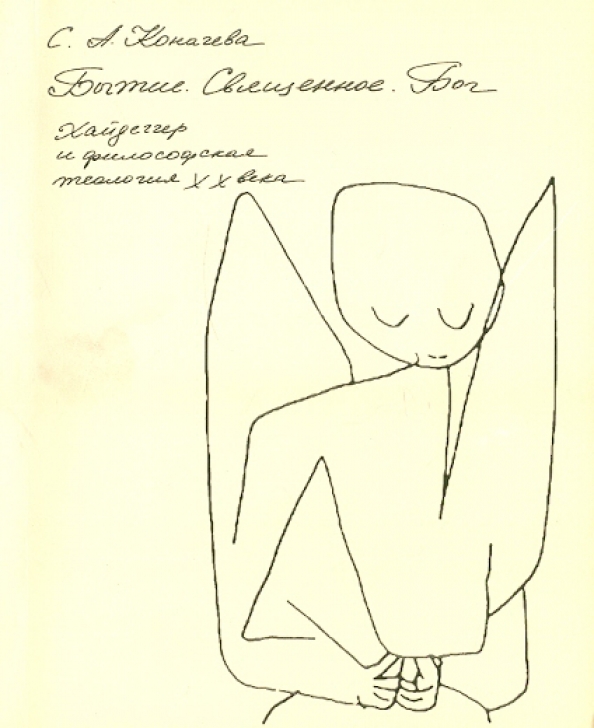 С. А. Коначева
Бытие. Священное. Бог
Хайдеггер
и философская
теология XX века